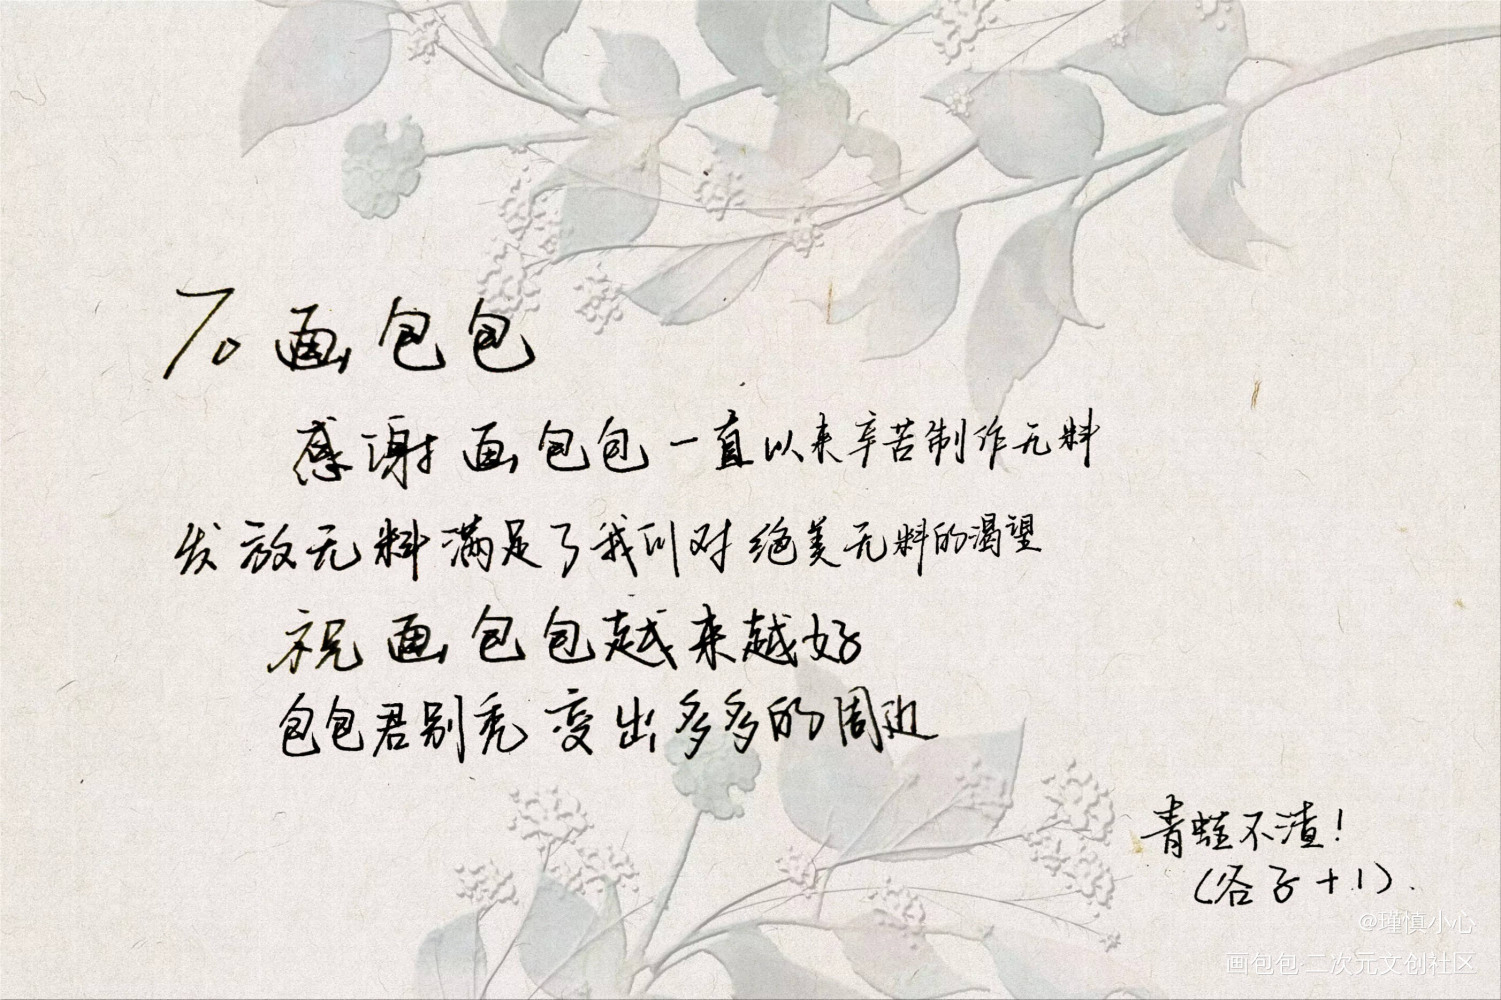 To 画包包
感谢画包包一直以来辛苦制作无料
发放无料满足了我们对绝美无料的渴望
祝画包包越来越好
包包君别秃 变出多多的周边
青蛙不渣！
（谷子+1）.
@瑾慎小心
画包包·二次元文创社区